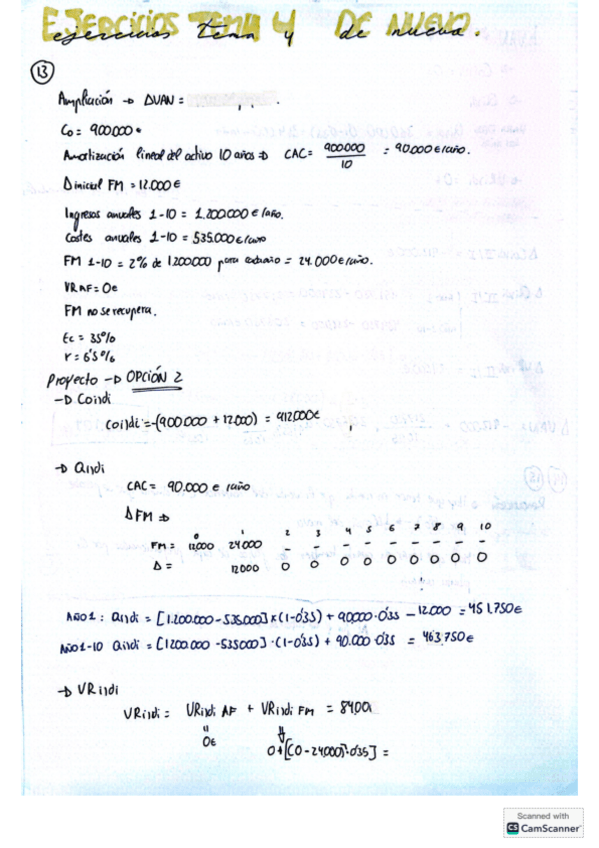 EJERCICIOS TEMA 4 DE NUEVO.
ejercicios tema 4 de nuevo.
13
Ampliación → ΔVAN =
Co = 900.000€
Amortización lineal del activo 10 años ⇒ CAC = 900000 / 10 = 90.000€/año.
Δ inicial FM = 12.000€
Ingresos anuales 1-10 = 1.200.000€/año.
Costes anuales 1-10 = 535.000€/año
FM 1-10 = 2% de 1200000 para cada año = 24.000€/año.
VRAF = 0€
FM no se recupera.
Ec = 35%
r = 6'5%
Proyecto → OPCIÓN 2
→ Coindi
Coindi = -(900.000 + 12.000) = 912000€
→ Qindi
CAC = 90.000 € /año
ΔFM ⇒
0 1 2 3 4 5 6 7 8 9 10
FM = 12,000 24000 - - - - - - - - -
Δ = 12000 0 0 0 0 0 0 0 0 0
AÑO 1: Qindi = [1.200.000 - 535.000] x (1-0'35) + 90,000·0'35 - 12.000 = 451.750€
AÑO 1-10 Qindi = [1200.000 - 535000] · (1-0'35) + 90.000·0'35 = 463.750€
→ VRindi
VRindi = VRindi AF + VRindi FM = 8400
0€ 0+[(0-24000)·0'35] =
Scanned with
CS CamScanner